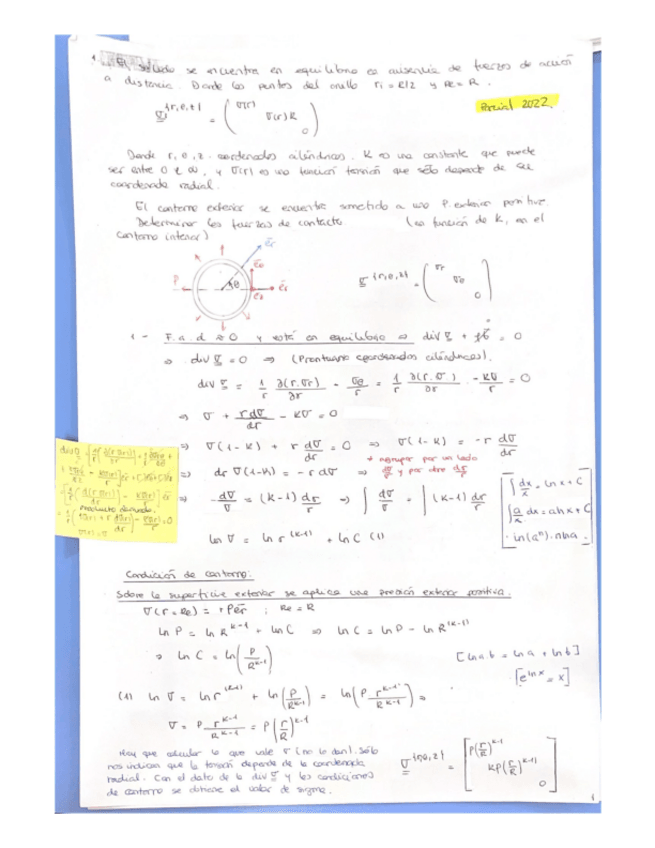 1. El sólido se encuentra en equilibrio en ausencia de fuerzas de acción
a distancia. Donde los puntos del anillo ri = R/2 y Re = R.
Parcial 2022
σ {r,θ,z} = ( σ(r) σ(r)K 0 )
Donde r, θ, z coordenadas cilíndricas. K es una constante que puede
ser entre 0 e ∞, y σ(r) es una función tensión que sólo depende de su
coordenada radial.
El contorno exterior se encuentra sometido a una P. exterior positiva.
Determinar las fuerzas de contacto (en función de K, en el
contorno interior)
P θ ēr ēθ ēz ēr
σ {r,θ,z} = ( σr σθ 0 )
1- F.a.d ≈ 0 y está en equilibrio ⇒ div σ + ρb = 0
⇒ div σ = 0 ⇒ (Prontuario coordenadas cilíndricas).
div σ = 1/r ∂(r·σr)/∂r - σθ/r = 1/r ∂(r·σ)/∂r - Kσ/r = 0
⇒ σ + r dσ/dr - Kσ = 0
⇒ σ(1-K) + r dσ/dr = 0 ⇒ σ(1-K) = -r dσ/dr
* agrupar por un lado
dσ/σ y por otro dr/r
⇒ dr σ(1-K) = -r dσ ⇒
⇒ dσ/σ = (K-1) dr/r ⇒ ∫ dσ/σ = ∫ (K-1) dr/r
ln σ = ln r^(K-1) + ln C (1)
∫ dx/x = ln x + C
∫ a/x dx = a ln x + C
producto derivada
Condición de contorno:
Sobre la superficie exterior se aplica una presión exterior positiva.
σ(r = Re) = +P ēr ; Re = R
ln P = ln R^K-1 + ln C ⇒ ln C = ln P - ln R^(K-1)
⇒ ln C = ln (P/R^K-1)
[ln a·b = ln a + ln b]
[e^ln x = x]
(1) ln σ = ln r^(K-1) + ln (P/R^K-1) = ln (P r^K-1/R^K-1) ⇒
σ = P r^K-1/R^K-1 = P (r/R)^K-1
Hay que calcular lo que vale σ (no lo dan). Sólo
nos indican que la tensión depende de la coordenada
radial. Con el dato de la div σ y las condiciones
de contorno se obtiene el valor de sigma.
σ {r,θ,z} = [ P(r/R)^K-1 KP(r/R)^K-1) 0 ]
1